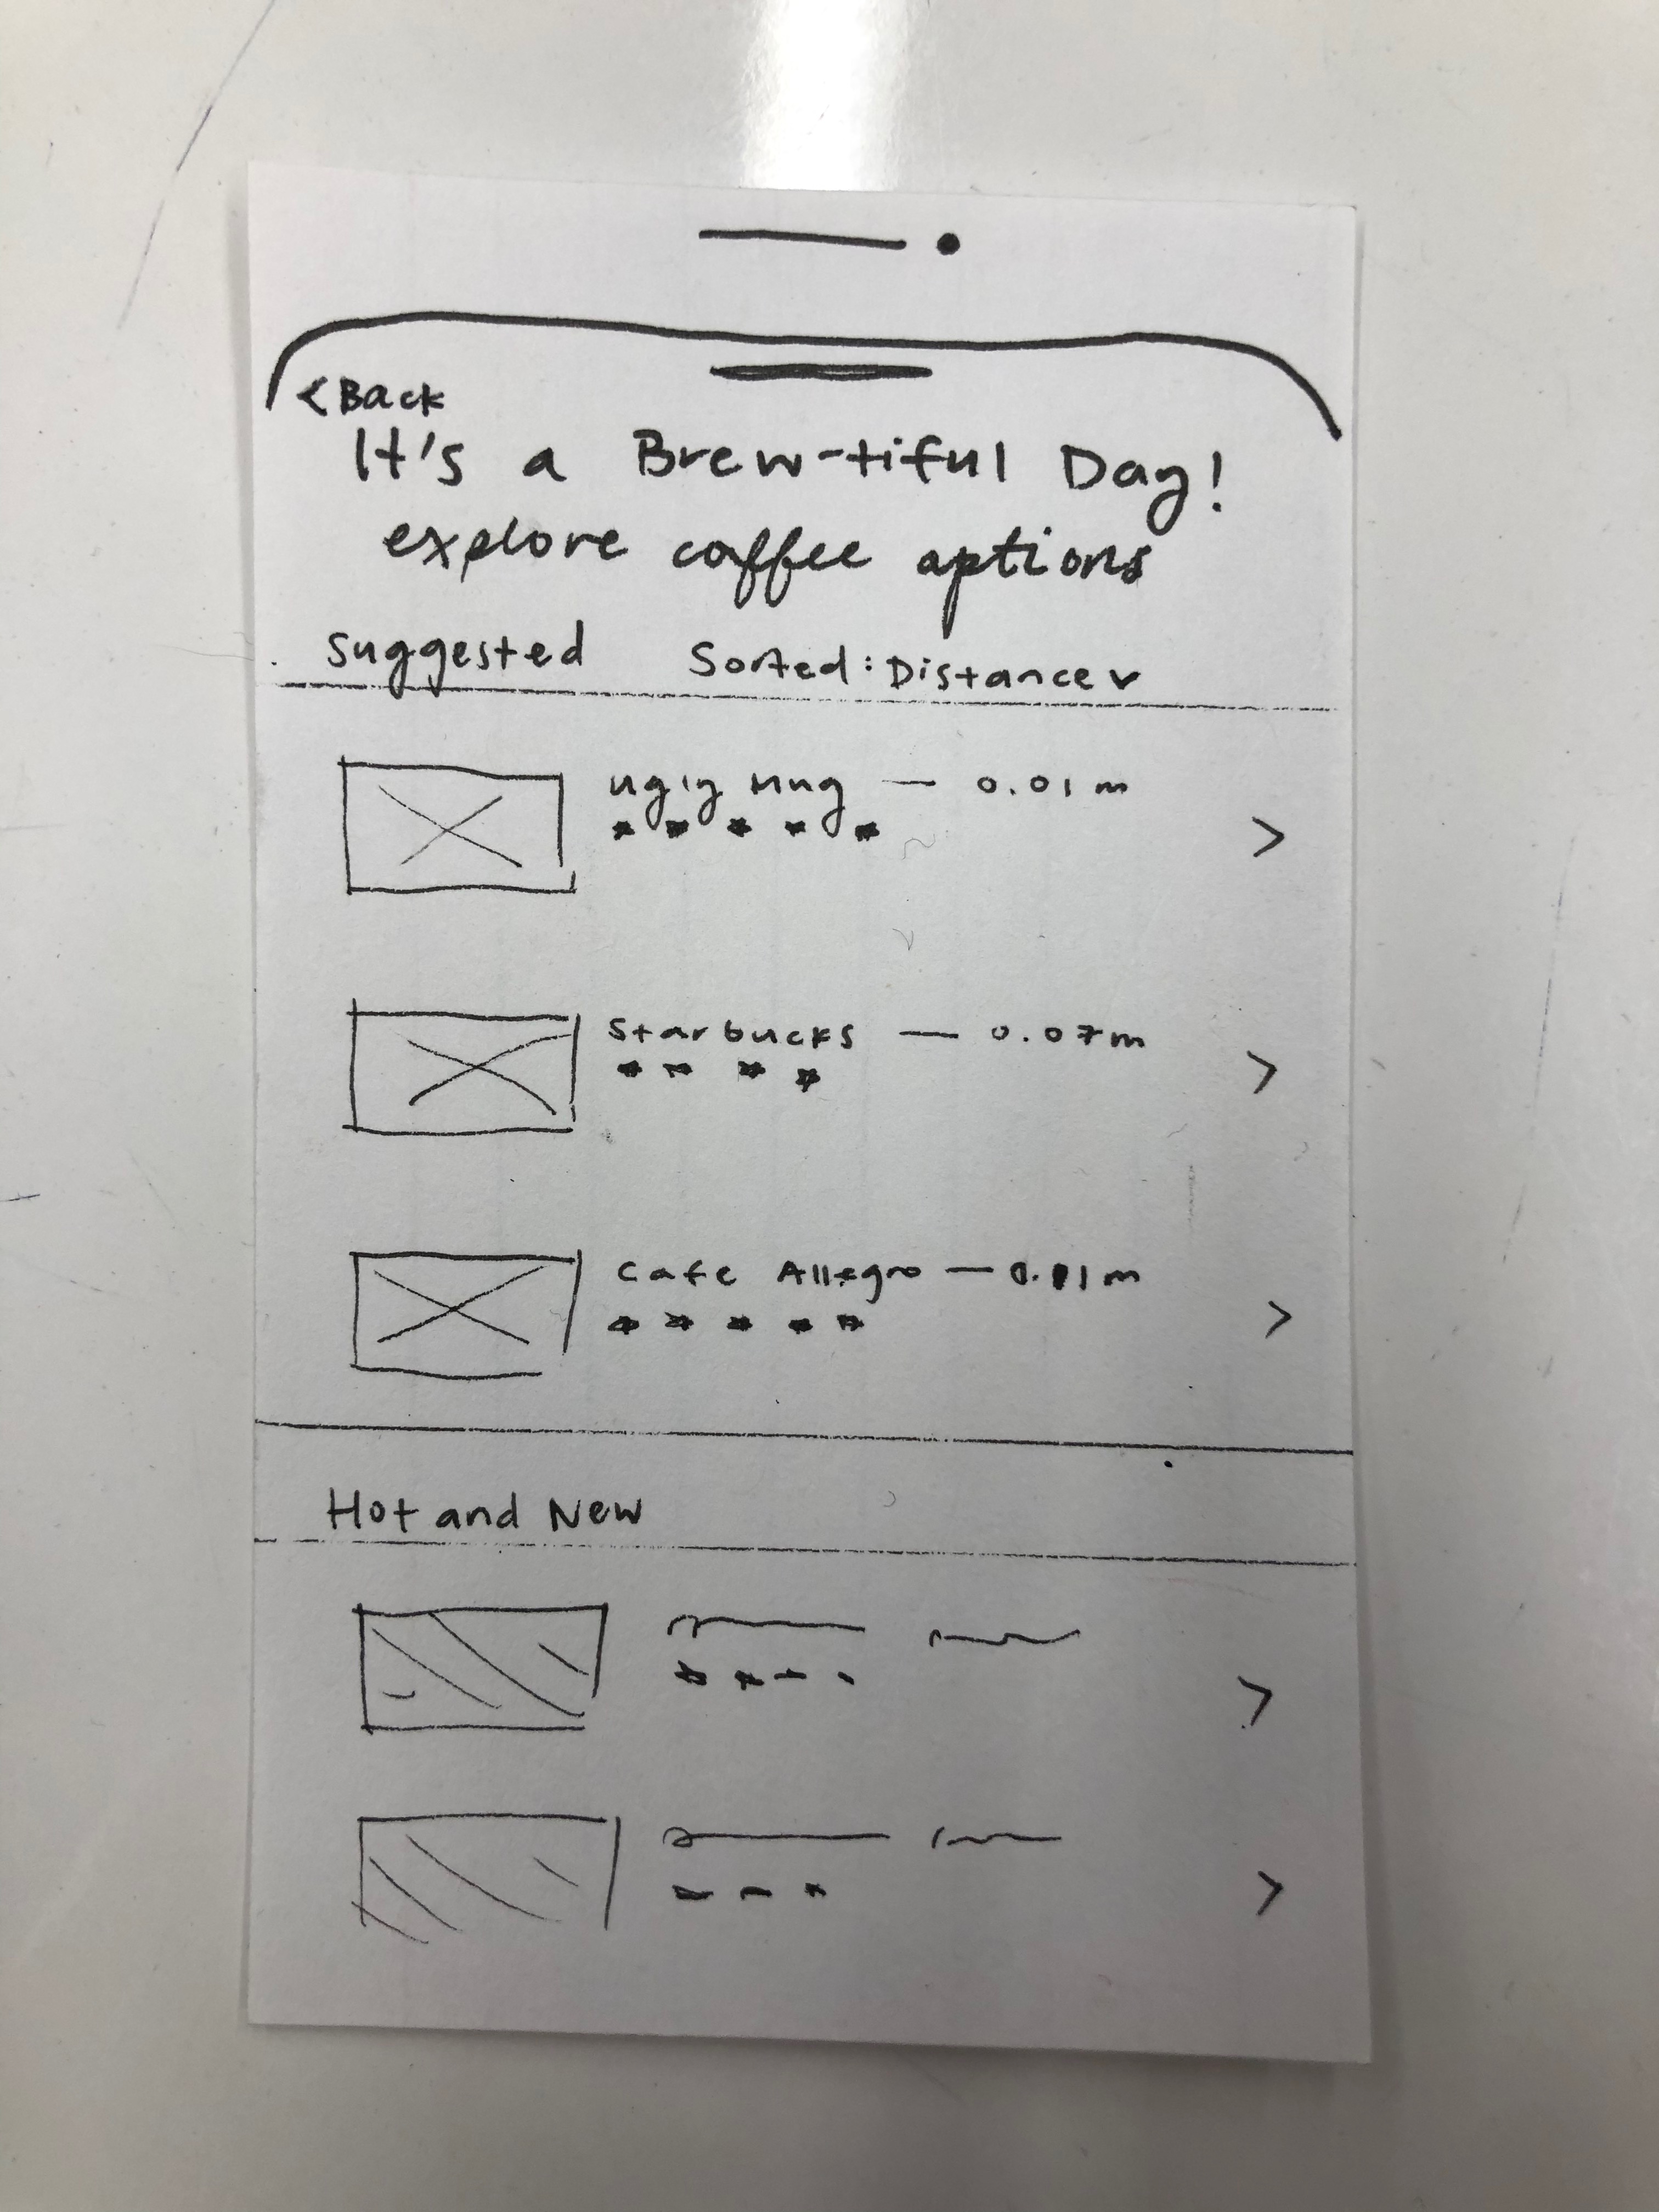 < Back
It's a Brew-tiful Day!
explore coffee options
Suggested Sorted: Distance
Ugly Mug — 0.01 m
★ ★ ★ ★ ★ >
Starbucks — 0.07m
★ ★ ★ ★ >
Cafe Allegro — m
★ ★ ★ ★ ★ >
Hot and New
>
>